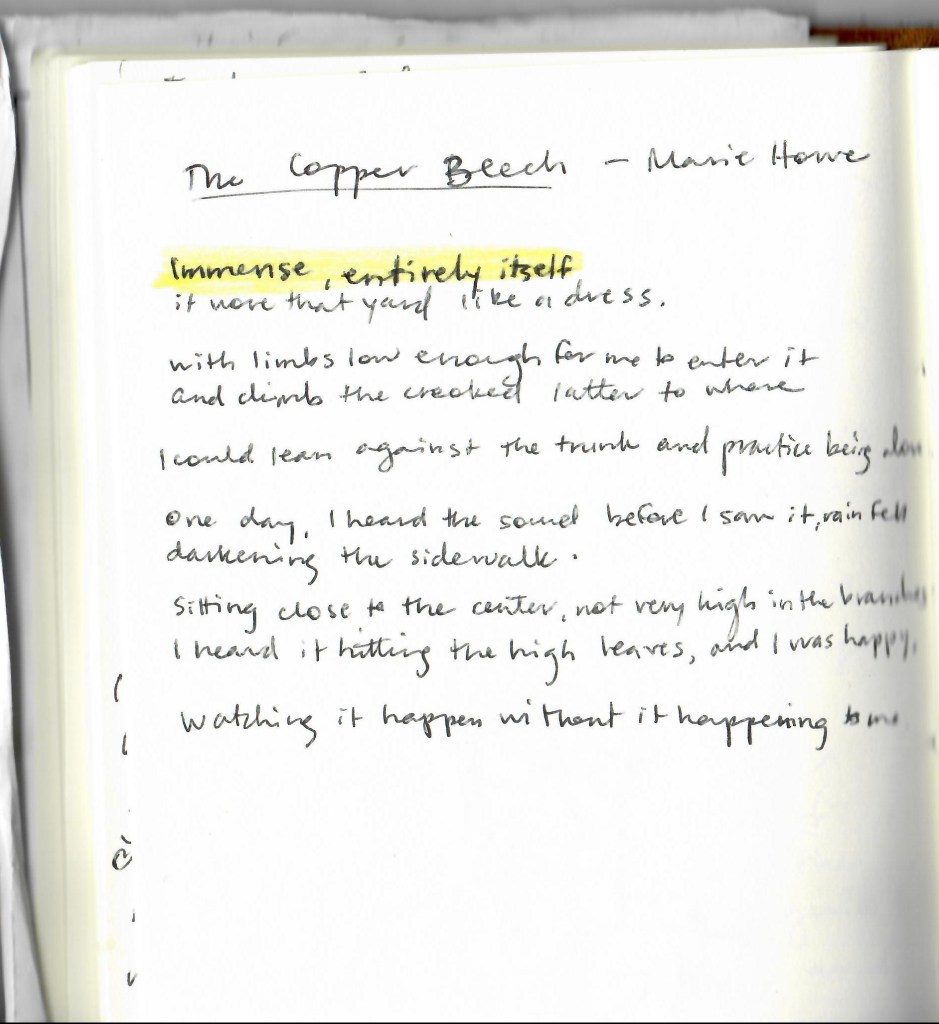 The Copper Beech – Marie Howe
Immense, entirely itself
it wore that yard like a dress.
with limbs low enough for me to enter it
and climb the crooked latter to where
I could lean against the trunk and practice being alone
One day, I heard the sound before I saw it, rain fell
darkening the sidewalk.
Sitting close to the center, not very high in the branches
I heard it hitting the high leaves, and I was happy,
watching it happen without it happening to me